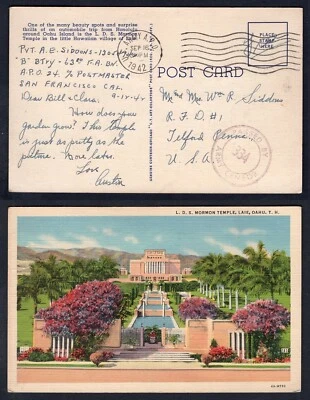 One of the many beauty spots and surprise
thrills of an automobile trip from Honolulu
around Oahu Island is the L. D. S. Mormon
Temple in the little Hawaiian village of Laie.
PVT. A.E. SIDDONS-
"B" BTRY - 63rd F.A. BN.
A.P.O. 24 % POSTMASTER
SAN FRANCISCO CAL.
9-15-42
Dear Bill + Clara:
How does your
garden grow? This temple
is just as pretty as the
picture. More later.
Love
Austin
SEP 16
1942
PLACE
STAMP
HERE
POST CARD
Mr and Mrs Wm R. Siddons
R.F.D. #1
Telford Penna.
U.S.A.
L. D. S. MORMON TEMPLE, LAIE, OAHU, T. H.